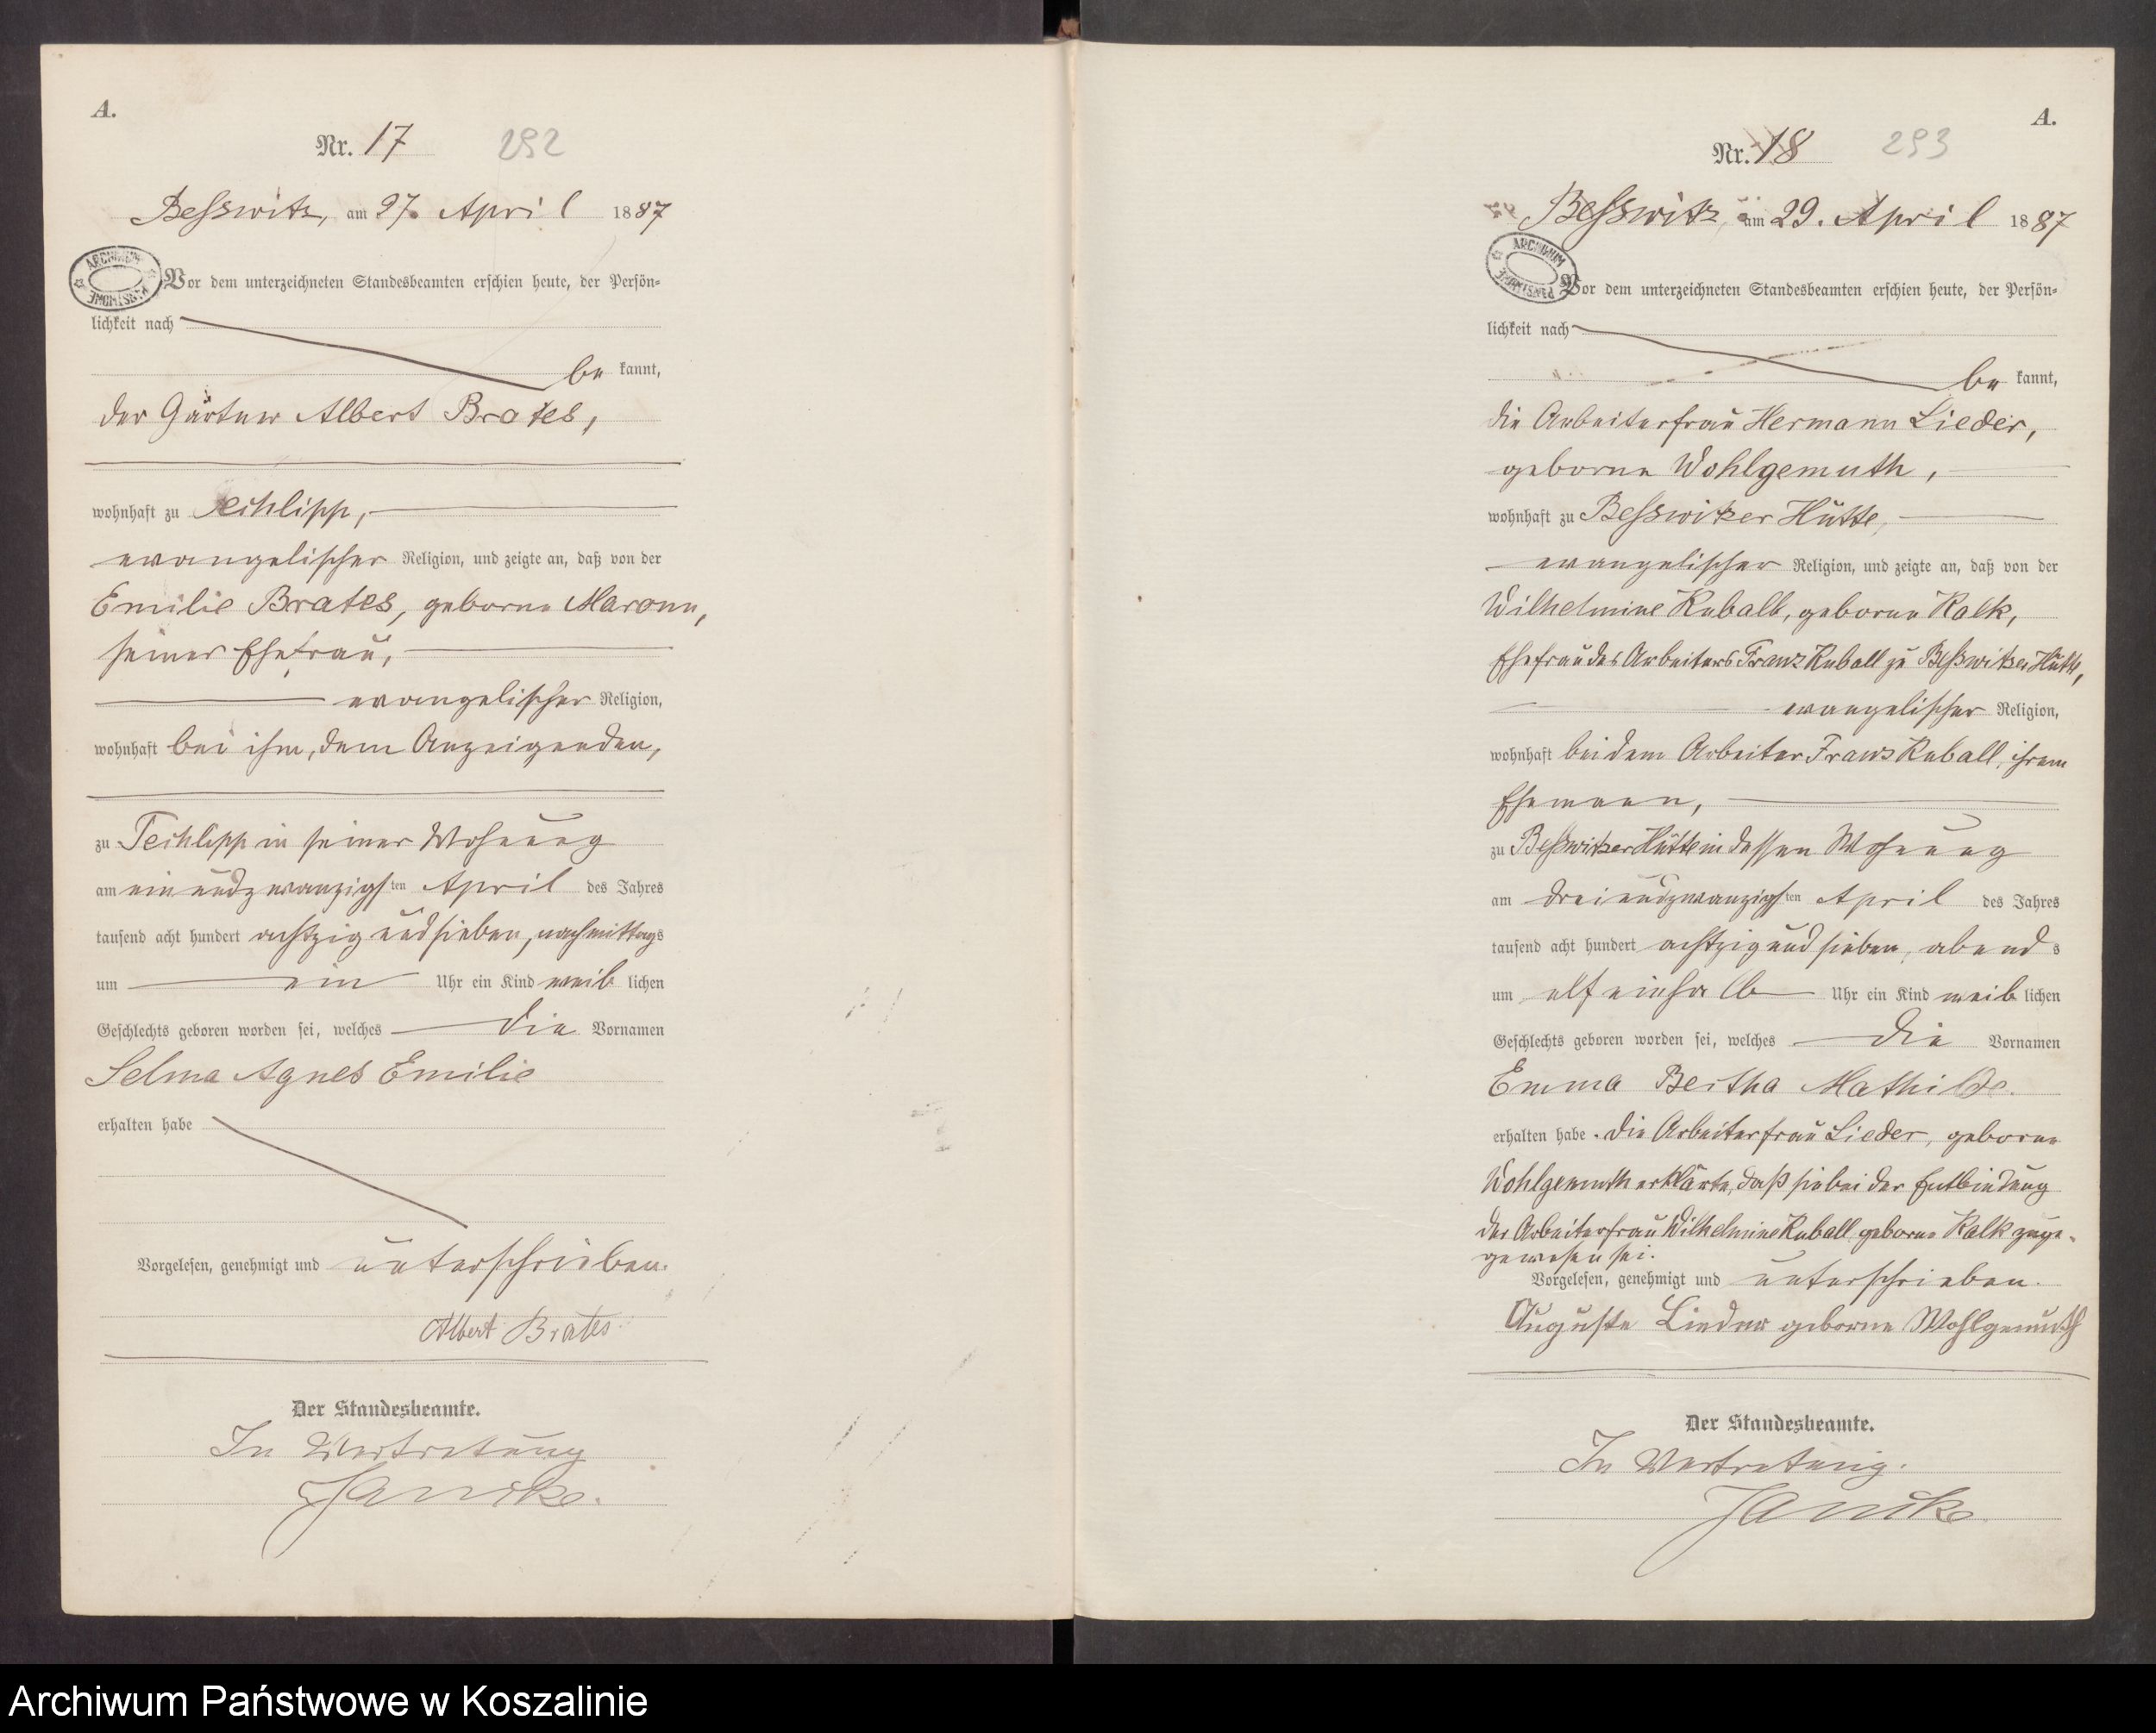 A.
Nr. 17 292
Besswitz, am 27. April 1887
ARCHIWUM PAŃSTWOWE
Vor dem unterzeichneten Standesbeamten erschien heute, der Persön=
lichkeit nach
be kannt,
der Gärtner Albert Brates,
wohnhaft zu Techlipp,
evangelischer Religion, und zeigte an, daß von der
Emilie Brates, geborne Maronn,
seiner Ehefrau,
evangelischer Religion,
wohnhaft bei ihm, dem Anzeigenden,
zu Techlipp in seiner Wohnung
am ein und zwanzigsten April des Jahres
tausend acht hundert achtzig und sieben, nachmittags
um ein Uhr ein Kind weib lichen
Geschlechts geboren worden sei, welches die Vornamen
Selma Agnes Emilie
erhalten habe
Vorgelesen, genehmigt und unterschrieben.
Albert Brates
Der Standesbeamte.
In Vertretung
Janike.
A.
Nr. 18 293
Besswitz, am 29. April 1887
ARCHIWUM PAŃSTWOWE
Vor dem unterzeichneten Standesbeamten erschien heute, der Persön=
lichkeit nach
be kannt,
die Arbeiterfrau Hermann Lieder,
geborne Wohlgemuth,
wohnhaft zu Besswitzer Hütte,
evangelischer Religion, und zeigte an, daß von der
Wilhelmine Kuball, geborne Kalk,
Ehefrau des Arbeiters Franz Kuball zu Besswitzer Hütte,
evangelischer Religion,
wohnhaft bei dem Arbeiter Franz Kuball, ihrem
Ehemann,
zu Besswitzer Hütte in dessen Wohnung
am drei und zwanzigsten April des Jahres
tausend acht hundert achtzig und sieben, abends
um elf einhalb Uhr ein Kind weib lichen
Geschlechts geboren worden sei, welches die Vornamen
Emma Bertha Mathilde.
erhalten habe. Die Arbeiterfrau Lieder, geborne
Wohlgemuth erklärte, daß sie bei der Entbindung
der Arbeiterfrau Wilhelmine Kuball geborne Kalk zuge=
gewesen sei.
Vorgelesen, genehmigt und unterschrieben.
Auguste Lieder geborne Wohlgemuth
Der Standesbeamte.
In Vertretung.
Janike
Archiwum Państwowe w Koszalinie